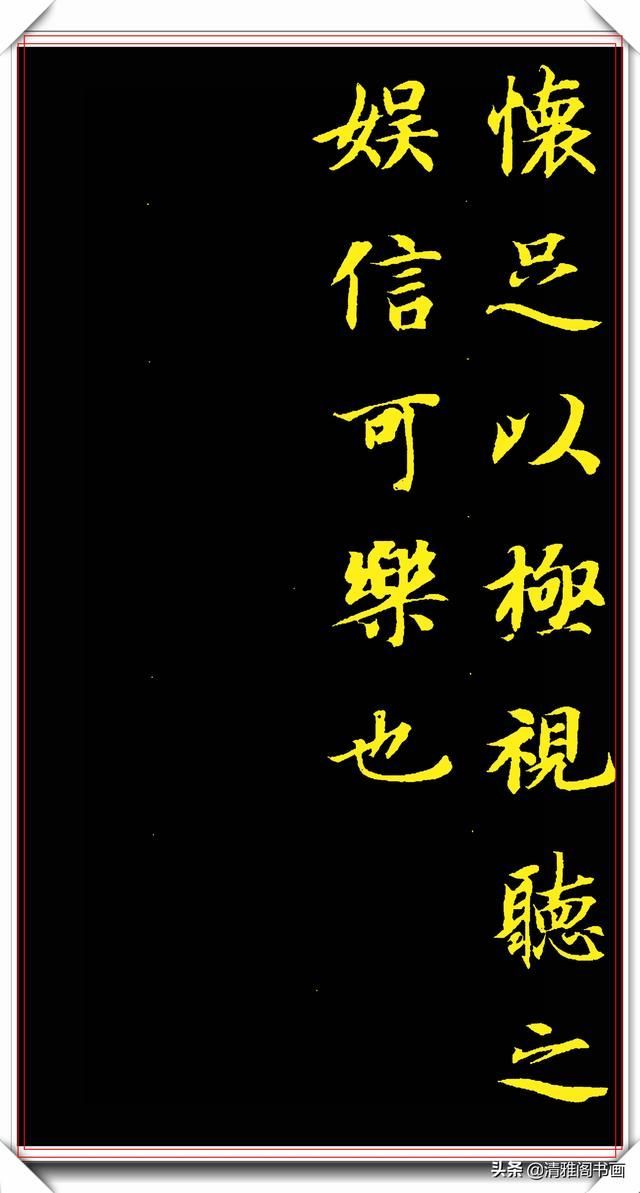 懐足以極視聽之
娱信可樂也
头条 @清雅阁书画